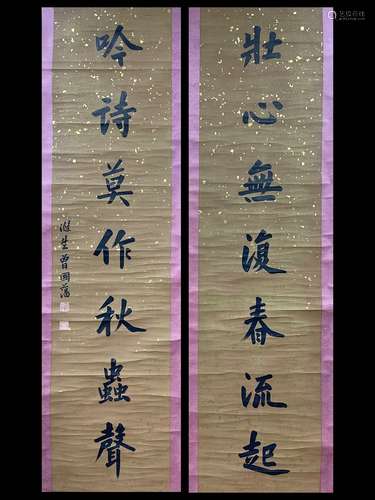 壯心無復春流起
吟詩莫作秋蟲聲
滌生曾國藩